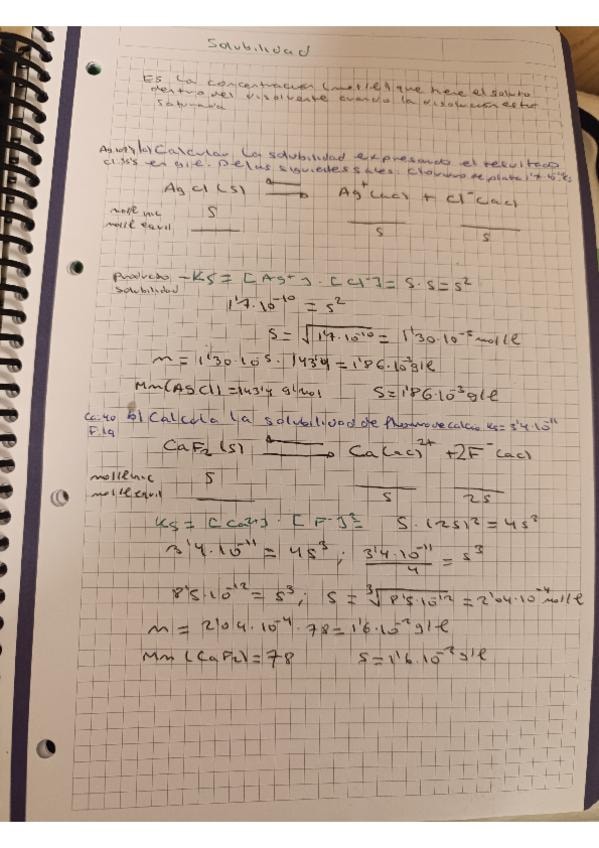 Solubilidad
Es la concentración (mol/l) que tiene el soluto
dentro del disolvente cuando la disolución esta
saturada
a) Calcular la solubilidad expresando el resultado
Cl:35'5 en g/l. De las siguientes sales. Cloruro de plata 1'7·10⁻¹⁰ Ks
AgCl (s) ⇌ Ag⁺(ac) + Cl⁻(ac)
mol/l inic S
mol/l equil — S S
Producto solubilidad - KS = [Ag⁺]·[Cl⁻] = S·S = S²
1'7·10⁻¹⁰ = S²
S = √1'7·10⁻¹⁰ = 1'30·10⁻⁵ mol/l
m = 1'30·10⁵ · 143'4 = 1'86·10⁻³ g/l
Mm(AgCl) = 143'4 g/mol S = 1'86·10⁻³ g/l
Ca:40 b) Calcula la solubilidad de fluoruro de calcio Ks = 3'4·10⁻¹¹
F:19
CaF₂ (s) ⇌ Ca(ac)²⁺ + 2F⁻(ac)
mol/l inic S
mol/l equil — S 2S
KS = [Ca²⁺]·[F⁻]² = S·(2S)² = 4S³
3'4·10⁻¹¹ = 4S³ ; 3'4·10⁻¹¹/4 = S³
8'5·10⁻¹² = S³ ; S = ∛8'5·10⁻¹² = 2'04·10⁻⁴ mol/l
m = 2'04·10⁻⁴ · 78 = 1'6·10⁻² g/l
Mm (CaF₂) = 78 S = 1'6·10⁻² g/l